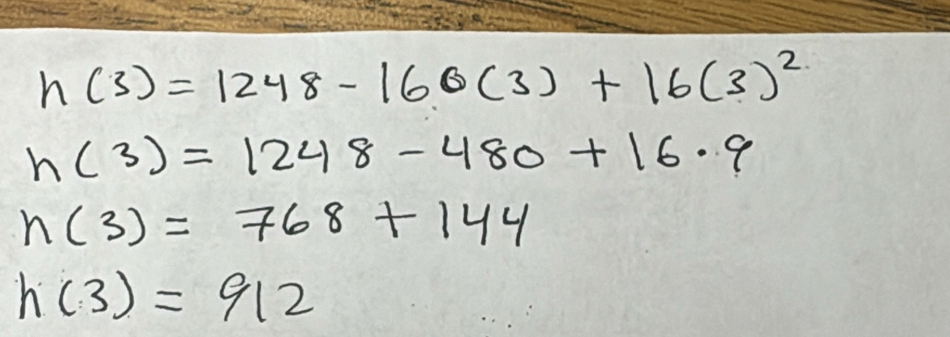 h(3) = 1248 - 160(3) + 16(3)²
h(3) = 1248 - 480 + 16 · 9
h(3) = 768 + 144
h(3) = 912